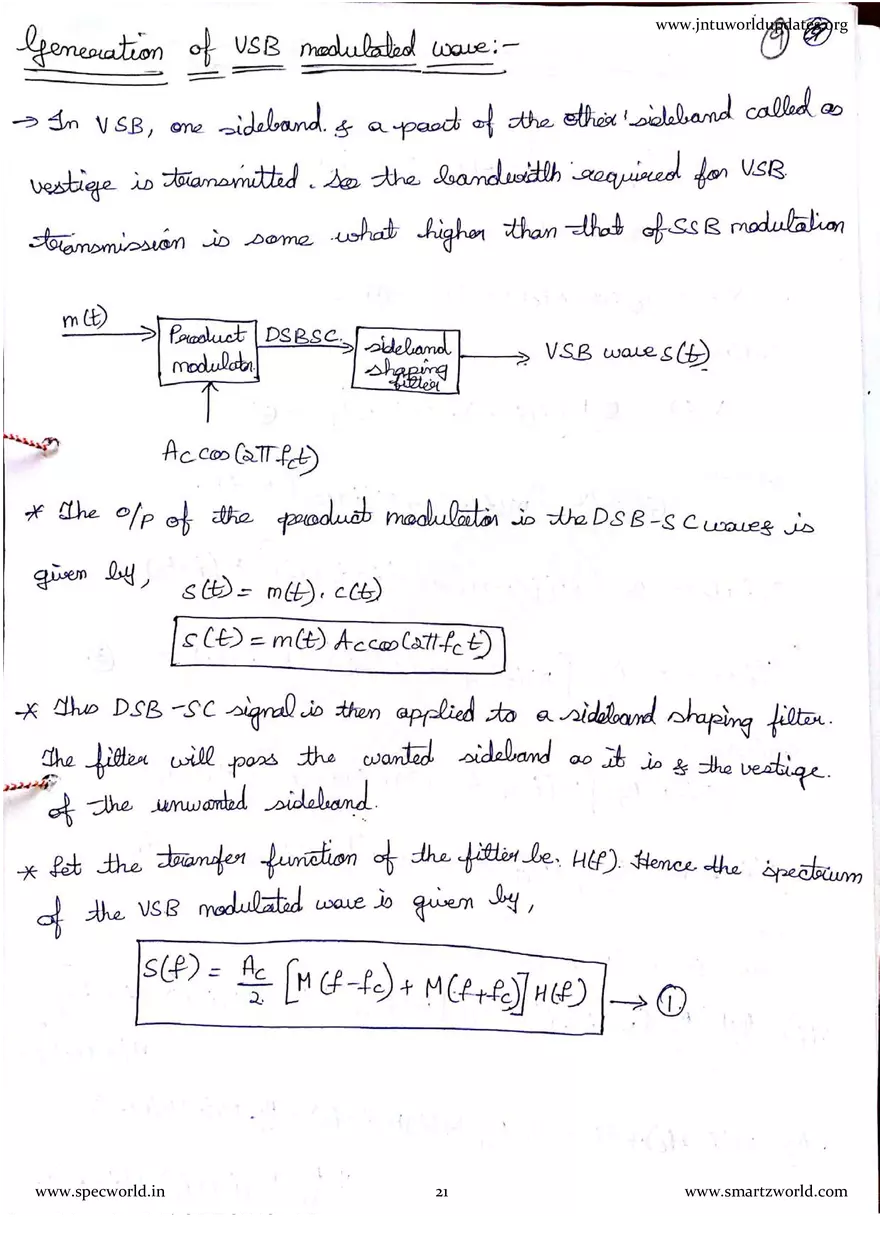 www.jntuworldupdates.org
9
Generation of VSB modulated wave:-
→ In VSB, one sideband. & a part of the other sideband called as
vestige is transmitted. So the bandwidth required for VSB.
transmission is some what higher than that of SSB modulation
m(t)
Product
modulator
DSBSC.
sideband
shaping
filter
VSB wave s(t)
Ac cos(2πfct)
* The o/p of the product modulator is the DSB-SC waves is
given by,
s(t) = m(t). c(t)
s(t) = m(t) Ac cos(2πfct)
* This DSB-SC signal is then applied to a sideband shaping filter.
The filter will pass the wanted sideband as it is & the vestige.
of the unwanted sideband.
* Let the transfer function of the filter be. H(f). Hence the spectrum
of the VSB modulated wave is given by,
S(f) = Ac/2 [M(f-fc) + M(f+fc)] H(f) → ①
www.specworld.in 21 www.smartzworld.com